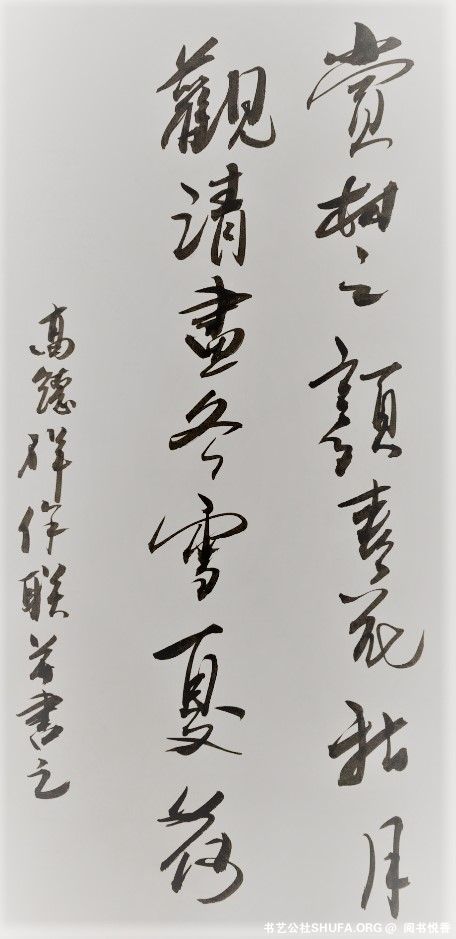 賞春花秋月
觀清盡冬雪夏荷
高德作联並書之
书艺公社SHUFA.ORG @ 阅书悦香